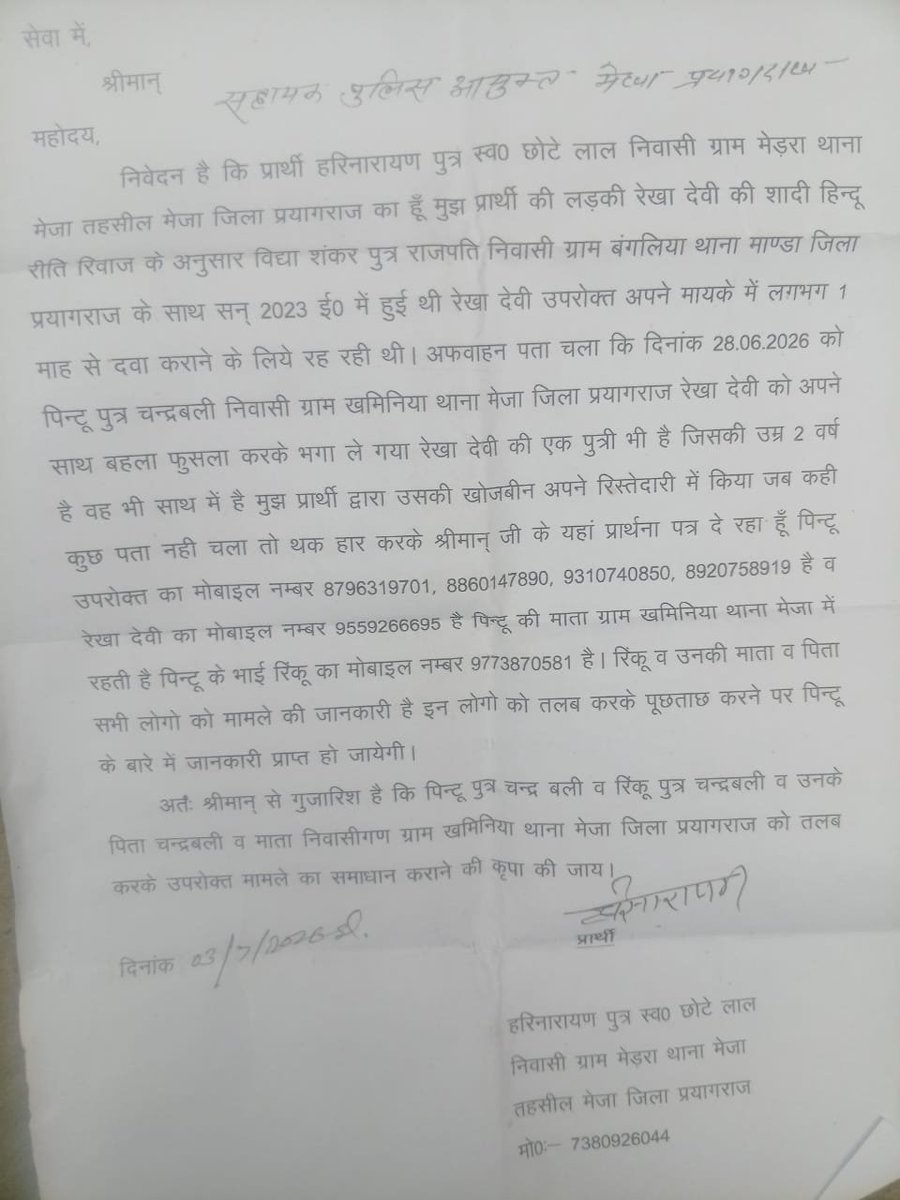 सेवा में,
श्रीमान् सहायक पुलिस आयुक्त मेजा प्रयागराज
महोदय,
निवेदन है कि प्रार्थी हरिनारायण पुत्र स्व0 छोटे लाल निवासी ग्राम मेड़रा थाना
मेजा तहसील मेजा जिला प्रयागराज का हूँ मुझ प्रार्थी की लड़की रेखा देवी की शादी हिन्दू
रीति रिवाज के अनुसार विद्या शंकर पुत्र राजपति निवासी ग्राम बंगलिया थाना माण्डा जिला
प्रयागराज के साथ सन् 2023 ई0 में हुई थी रेखा देवी उपरोक्त अपने मायके में लगभग 1
माह से दवा कराने के लिये रह रही थी। अफवाहन पता चला कि दिनांक 28.06.2026 को
पिन्टू पुत्र चन्द्रबली निवासी ग्राम खमिनिया थाना मेजा जिला प्रयागराज रेखा देवी को अपने
साथ बहला फुसला करके भगा ले गया रेखा देवी की एक पुत्री भी है जिसकी उम्र 2 वर्ष
है वह भी साथ में है मुझ प्रार्थी द्वारा उसकी खोजबीन अपने रिस्तेदारी में किया जब कही
कुछ पता नही चला तो थक हार करके श्रीमान् जी के यहां प्रार्थना पत्र दे रहा हूँ पिन्टू
उपरोक्त का मोबाइल नम्बर 8796319701, 8860147890, 9310740850, 8920758919 है व
रेखा देवी का मोबाइल नम्बर 9559266695 है पिन्टू की माता ग्राम खमिनिया थाना मेजा में
रहती है पिन्टू के भाई रिंकू का मोबाइल नम्बर 9773870581 है। रिंकू व उनकी माता व पिता
सभी लोगो को मामले की जानकारी है इन लोगो को तलब करके पूछताछ करने पर पिन्टू
के बारे में जानकारी प्राप्त हो जायेगी।
अतंः श्रीमान् से गुजारिश है कि पिन्टू पुत्र चन्द्र बली व रिंकू पुत्र चन्द्रबली व उनके
पिता चन्द्रबली व माता निवासीगण ग्राम खमिनिया थाना मेजा जिला प्रयागराज को तलब
करके उपरोक्त मामले का समाधान कराने की कृपा की जाय।
हरिनारायण
प्रार्थी
दिनांक 03/7/2026 ई.
हरिनारायण पुत्र स्व0 छोटे लाल
निवासी ग्राम मेड़रा थाना मेजा
तहसील मेजा जिला प्रयागराज
मो0:- 7380926044